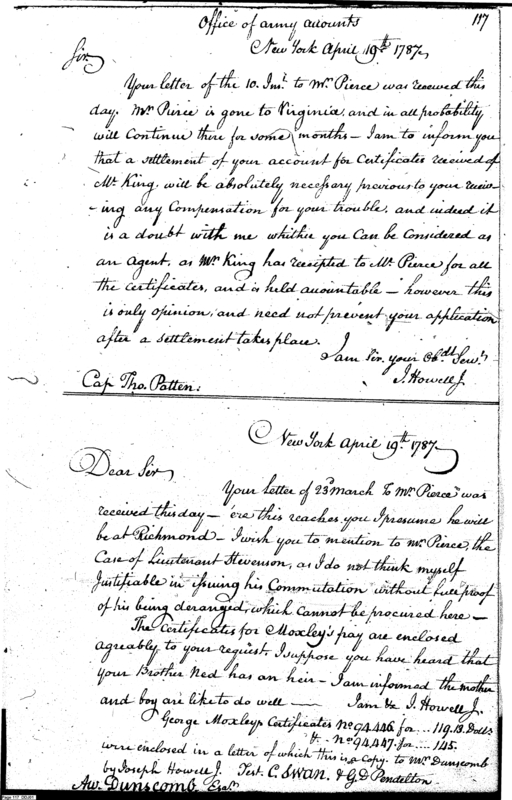 Office of army accounts
117
New York April 19th 1787
Sir
Your letter of the 10. Inst. to Mr. Pierce was received this
day. Mr. Pierce is gone to Virginia, and in all probability
will Continue there for some months – I am to inform you
that a settlement of your account for Certificates received of
Mr. King, will be absolutely necessary previous to your receiv
-ing any Compensation for your trouble, and indeed it
is a doubt with me whither you Can be Considered as
an Agent, as Mr. King has receipted to Mr. Pierce for all
the certificates, and is held accountable – however this
is only opinion, and need not prevent your application
after a settlement takes place.
I am Sir, your Obdt. Servt.
J. Howell J.
Cap Tho. Patten:
New York April 19th. 1787.
Dear Sir
Your Letter of 23d March To Mr. Pierce was
received this day – 'ere this reaches you I presume he will
be at Richmond – I wish you to mention to Mr. Pierce, the
Case of Lieutenant Stevenson, as I do not think myself
Justifiable in issuing his Commutation without full proof
of his being deranged, which cannot be procured here –
The Certificates for Moxley's pay are enclosed
agreably to your request. I suppose you have heard that
your Brother Ned has an heir – I am informed the mother
and boy are like to do well – I am &c J. Howell J.
George Moxleys Certificates No 94.446 for ... 119.13 Dolls
& – No 94.447. for ... 145.
were enclosed in a letter of which this is a Copy. to Mr. Dunscomb
by Joseph Howell J. Test. C. Swan. & G. D Pendelton
Aw. Dunscomb. Esqr.
Page 117 120391